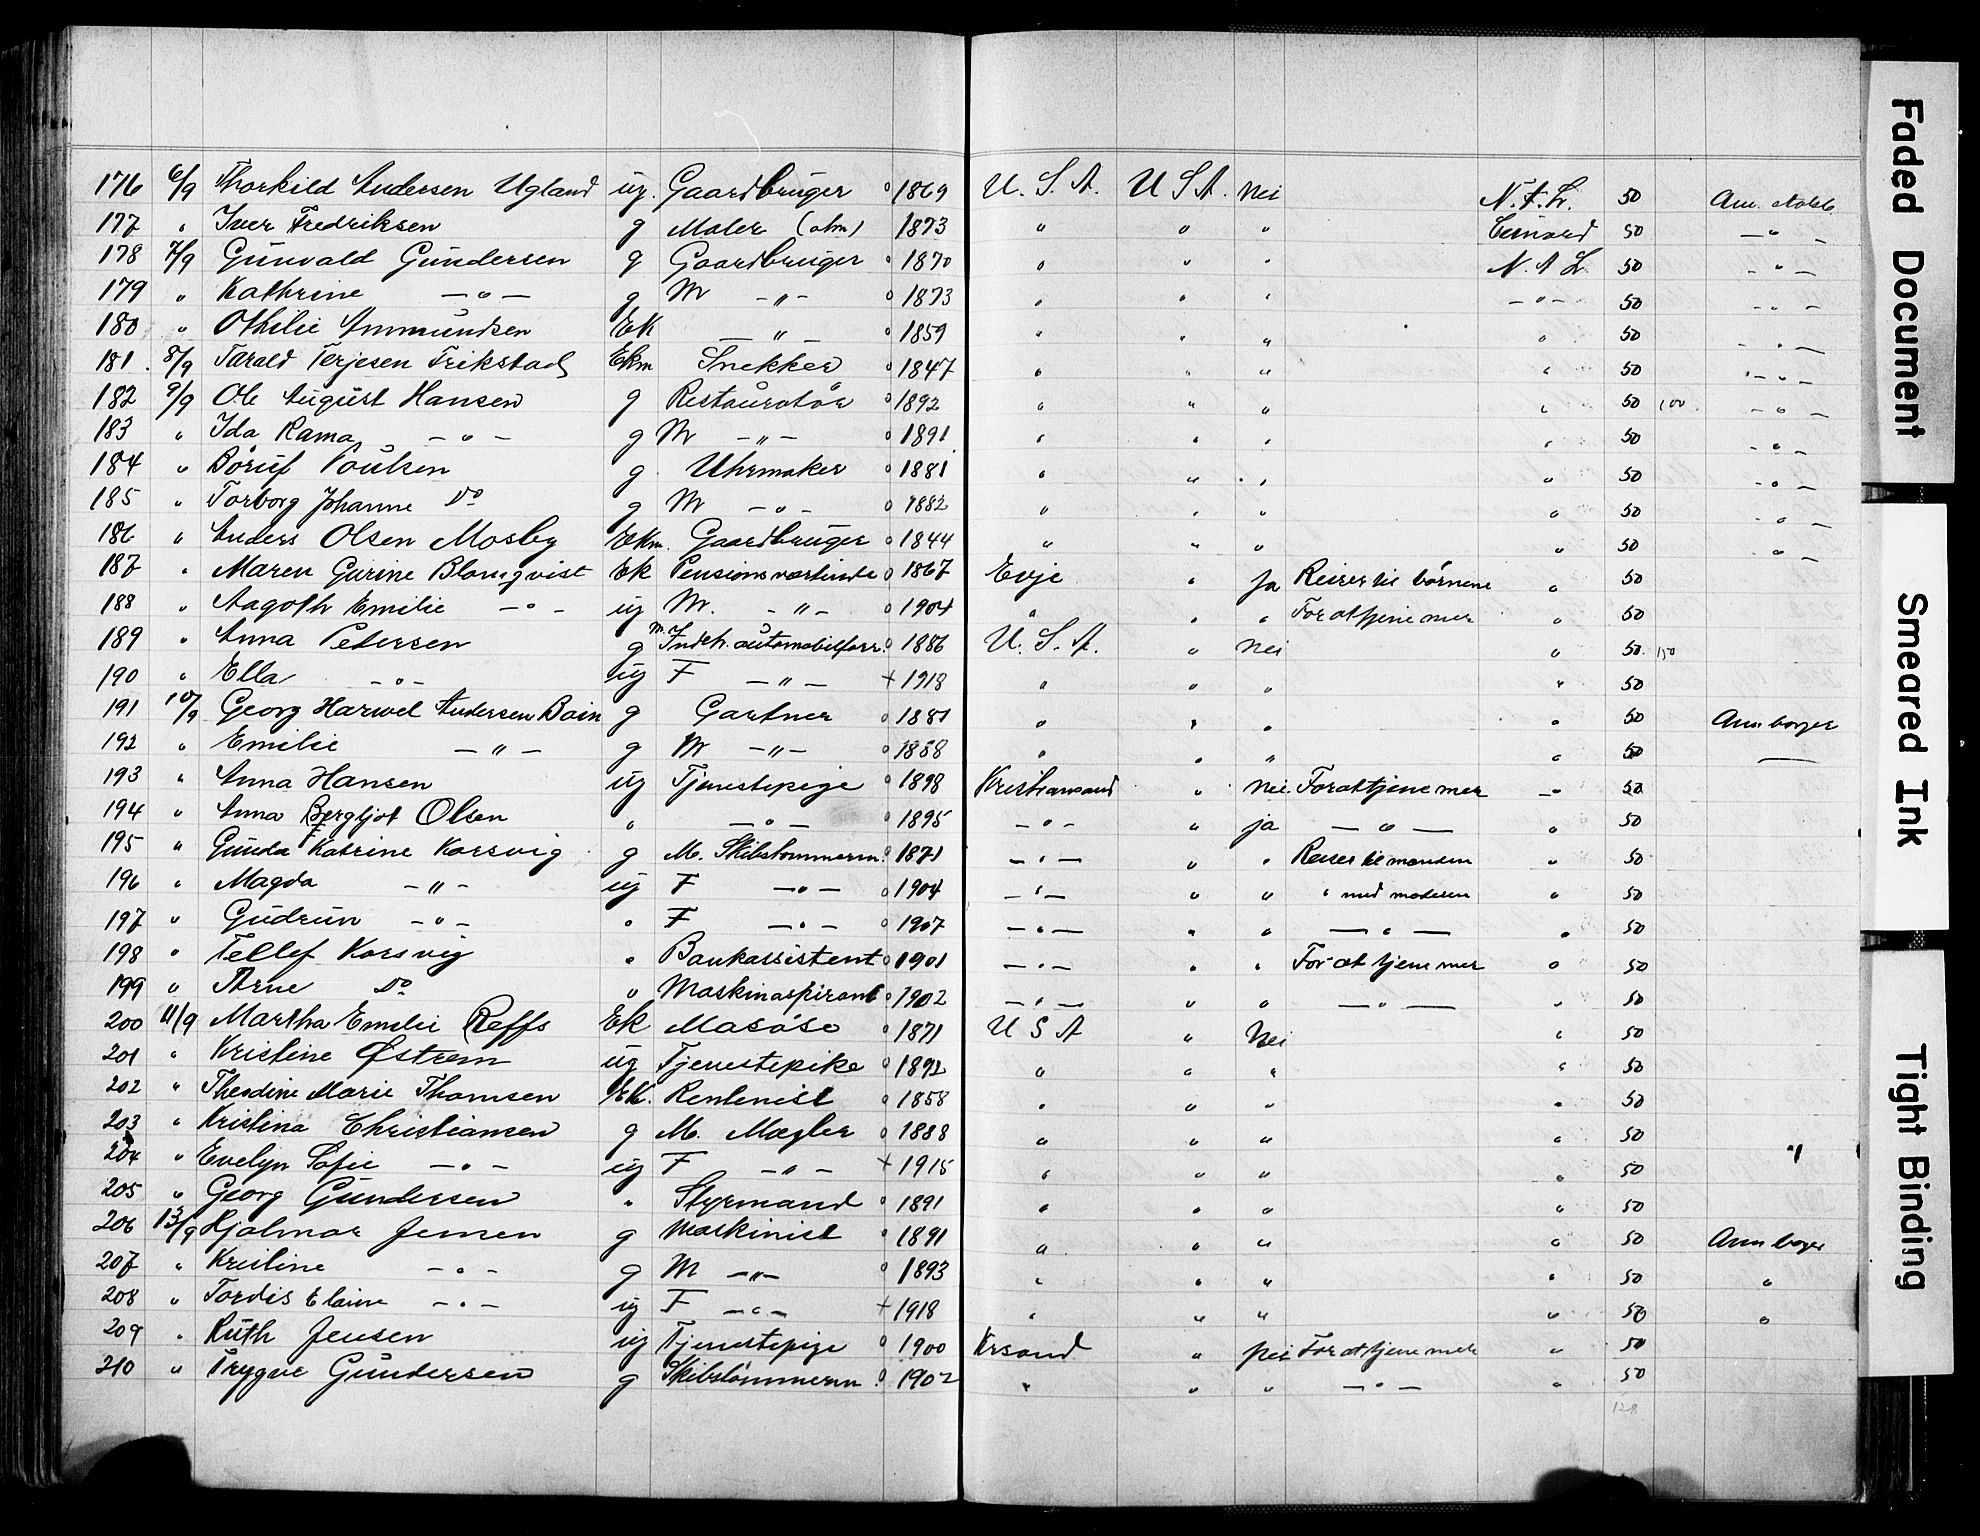 176 6/9 Thorkild Andersen Ugland ug. Gaardbruger o 1869 U. S. A. U S A. Nei N. A. L. 50 Am.
177 " Iver Fredriksen g Maler 1873 " " " Cunard 50 —"—
178 7/9 Gunvald Gundersen g Gaardbruger o 1870 " " " N. A L. 50 —"—
179 " Kathrine —"— g M —"— o 1873 " " " —"— 50 —"—
180 " Othilie Ammundsen EK —"— o 1859 " " " " 50 —"—
181 8/9 Tarald Terjesen Frikstad Ekm Snekker o 1847 " " " " 50 —"—
182 9/9 Ole August Hansen g Restauratør o 1892 " " " " 50 100 —"—
183 " Ida Rama —"— g M —"— o 1891 " " " " 50 —"—
184 " Børuf Poulsen g. Uhrmaker o 1881 " " " " 50 —"—
185 " Torborg Johanne Do g M —"— o 1882 " " " " 50 —"—
186 " Anders Olsen Mosby Ekm. Gaardbruger o 1844 " " " " 50 —"—
187 " Maren Gurine Blomqvist Ek Pensionsværtinde o 1867 Evje " Ja Reiser til børnene " 50
188 " Aagoth Emilie —"— ug M. —"— o 1904 " " " For at tjene mer " 50
189 " Anna Petersen g M. Indeh. automobilforr. o 1886 U. S. A. " Nei " 50 150
190 " Ella —"— ug F —"— + 1918 " " " " 50
191 10/9 Georg Harwel Andersen Boin g Gartner o 1881 " " " " 50 Am borger
192 " Emilie —"— g M —"— o 1888 " " " " 50 —
193 " Anna Hansen ug Tjenestepige o 1898 Kristiansand " Nei For at tjene mer —" 50
194 " Anna Bergljot Olsen " —"— o 1895 —"— " ja —"— " 50
195 " Gunda Katrine Korsvig g M. Skibstømmerm. o 1871 —"— " " Reiser til manden " 50
196 " Magda —"— ug F —"— o 1904 —"— " " " med moderen " 50
197 " Gudrun —"— " F —"— o 1907 —"— " " —"— " 50
198 " Tellef Korsvig " Bankassistent o 1901 —"— " " For at tjene mer " 50
199 " Arne Do " Maskinaspirant o 1902 —"— " " —"— " 50
200 11/9 Martha Emilie Reffs Ek Masøse o 1871 U S A " Nei " 50
201 " Kristine Østrem ug Tjenestepike o 1892 " " " " 50
202 " Theodine Marie Thomsen EK. Rentenist o 1858 " " " " 50
203 " Kristina Christiansen g M. Mægler o 1888 " " " " 50
204 " Evelyn Sofie —"— ug F —"— + 1915 " " " " 50 "
205 " Georg Gundersen " Styrmand o 1891 " " " " 50
206 13/9 Hjalmar Jensen g Maskinist o 1891 " " " " 50 Am borger
207 " Kristine —"— g M —"— o 1893 " " " " 50 "
208 " Tordis Elaine —"— ug F —"— + 1918 " " " " 50 "
209 " Ruth Jensen ug Tjenestepige o 1900 Krsand " Nei For at tjene mer " 50
210 " Trygve Gundersen g Skibstømmerm o 1902 " " " —"— " 50
128
Faded Document
Smeared Ink
Tight Binding